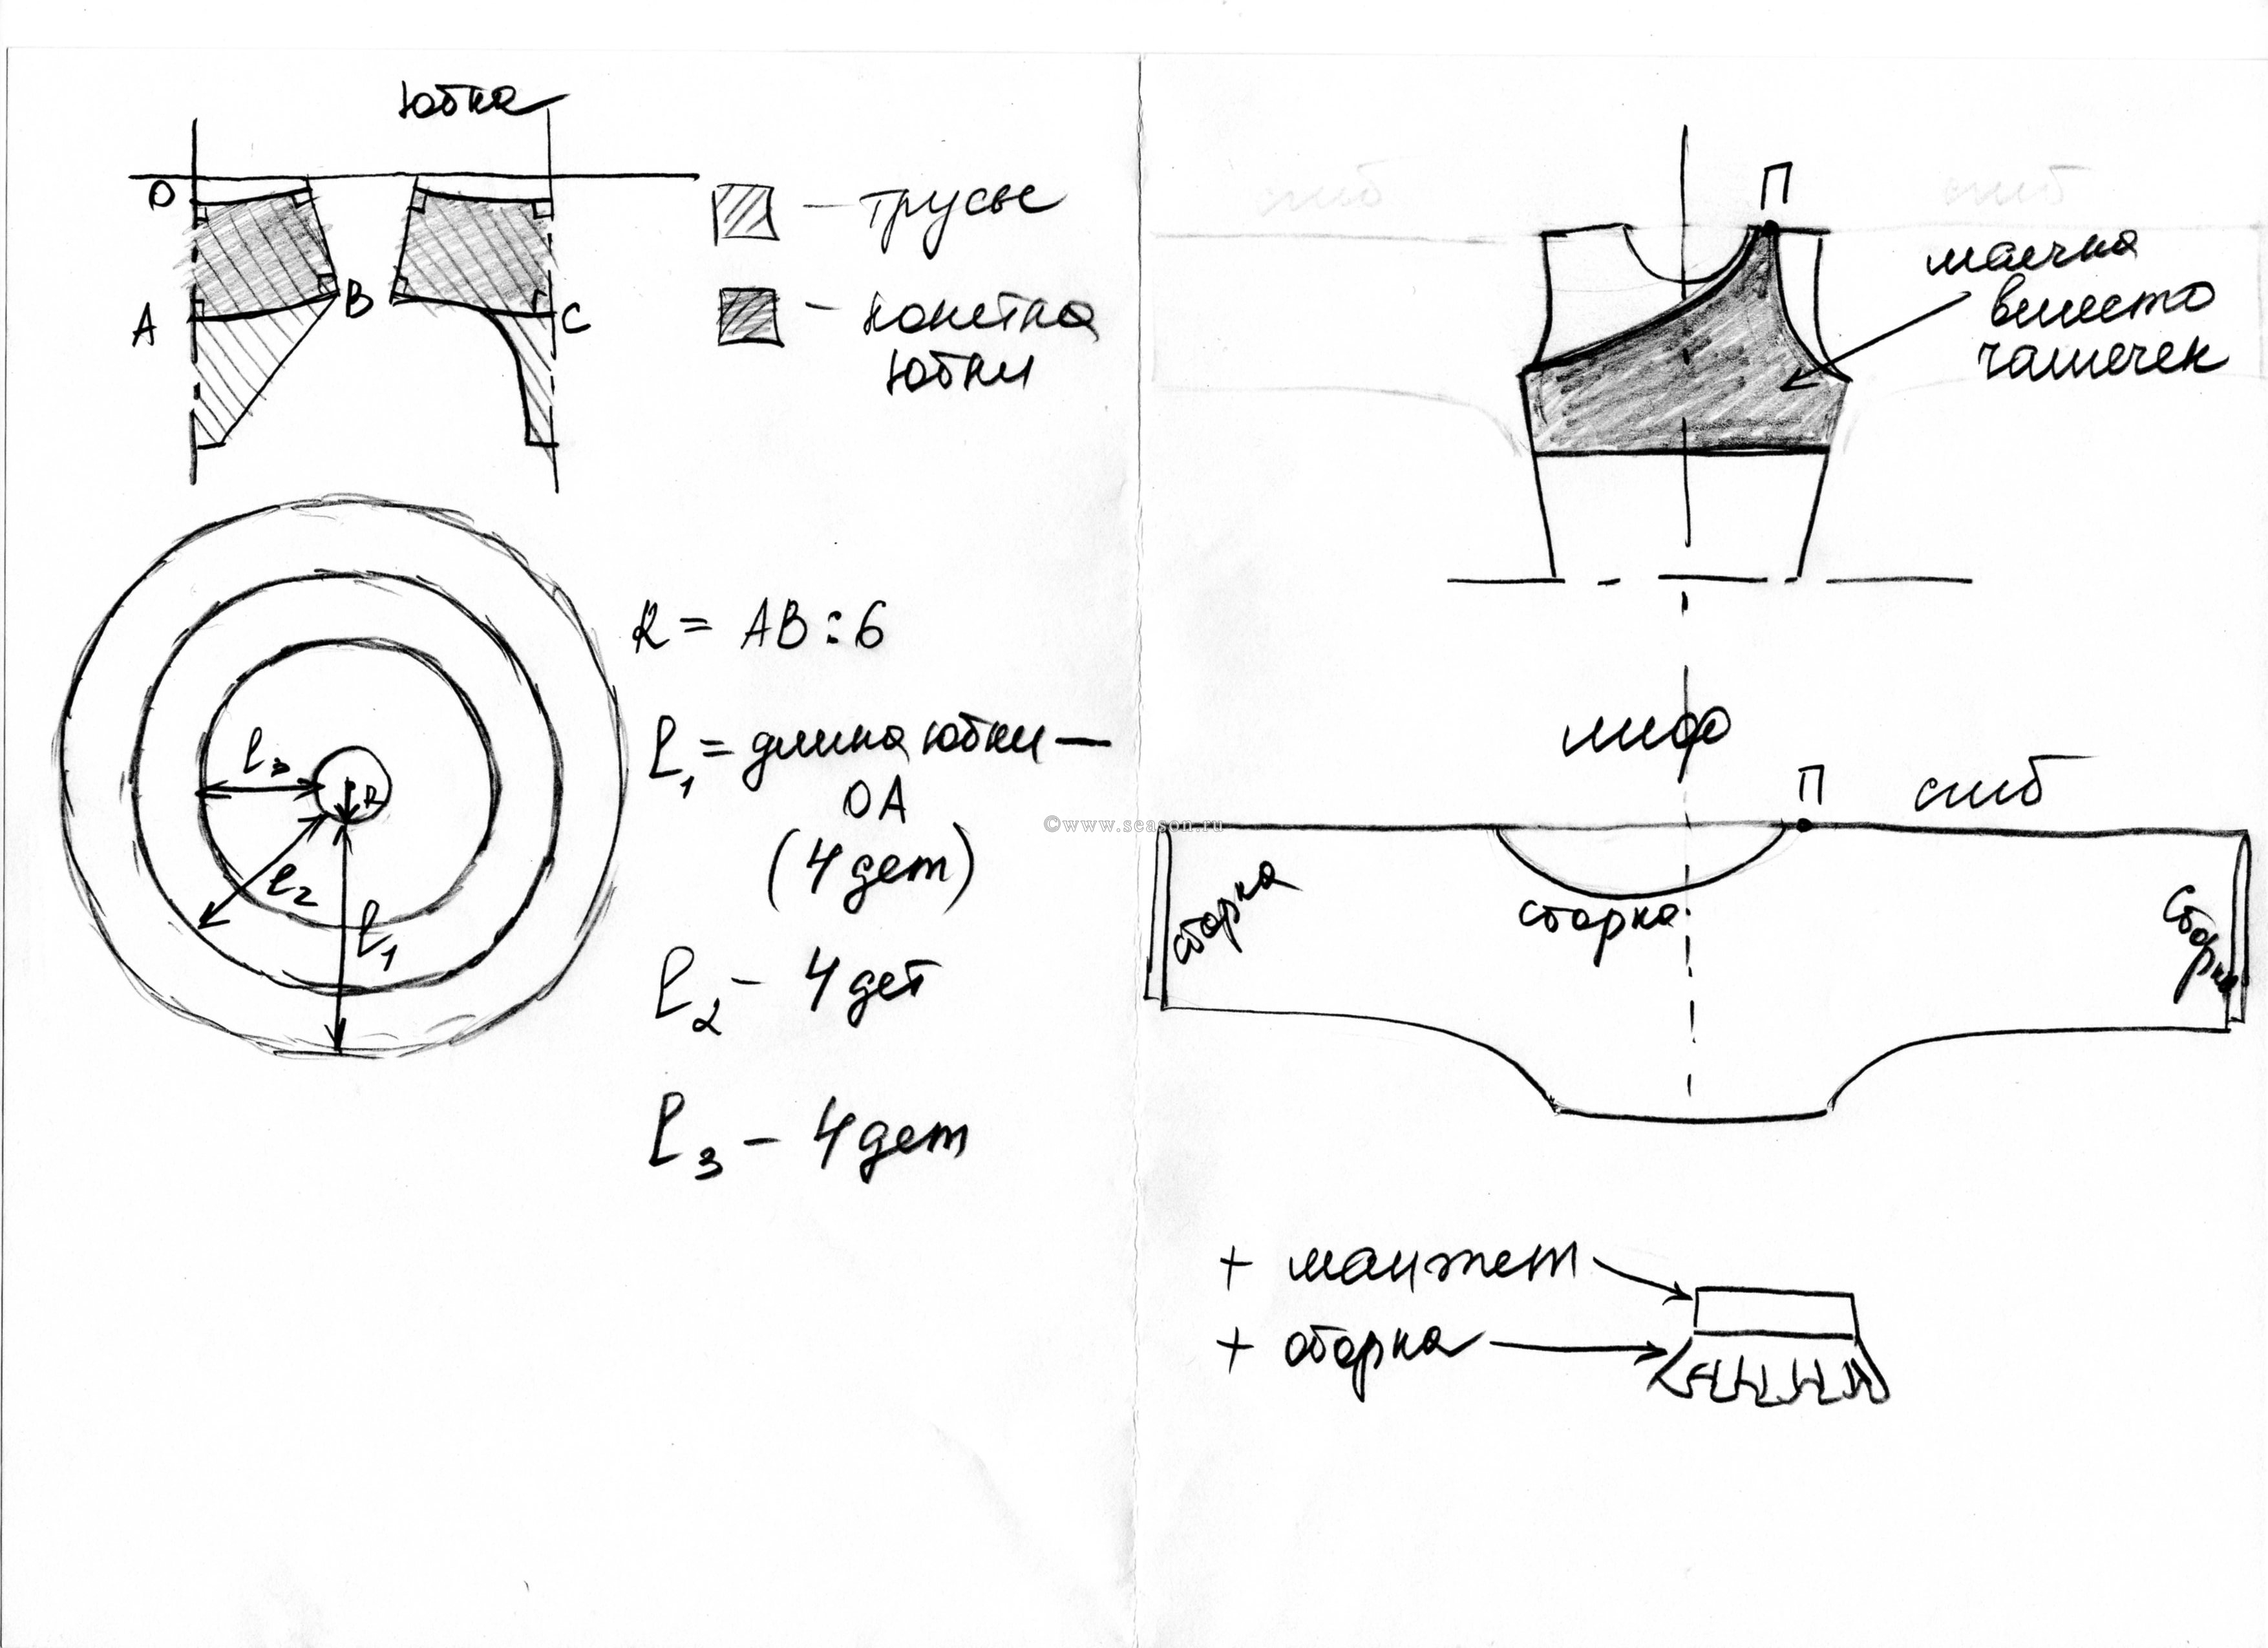 юбка
О
А
В
С
— трусы
— кокетка
юбки
R = АВ : 6
l₁ = длина юбки —
ОА
(4 дет)
l₂ — 4 дет
l₃ — 4 дет
l₃
R
l₂
l₁
сгиб
сгиб
П
маечка
вместо
чашечек
лиф
П
сгиб
©www.season.ru
сборка
сборка
сборка
+ манжет
+ оборка